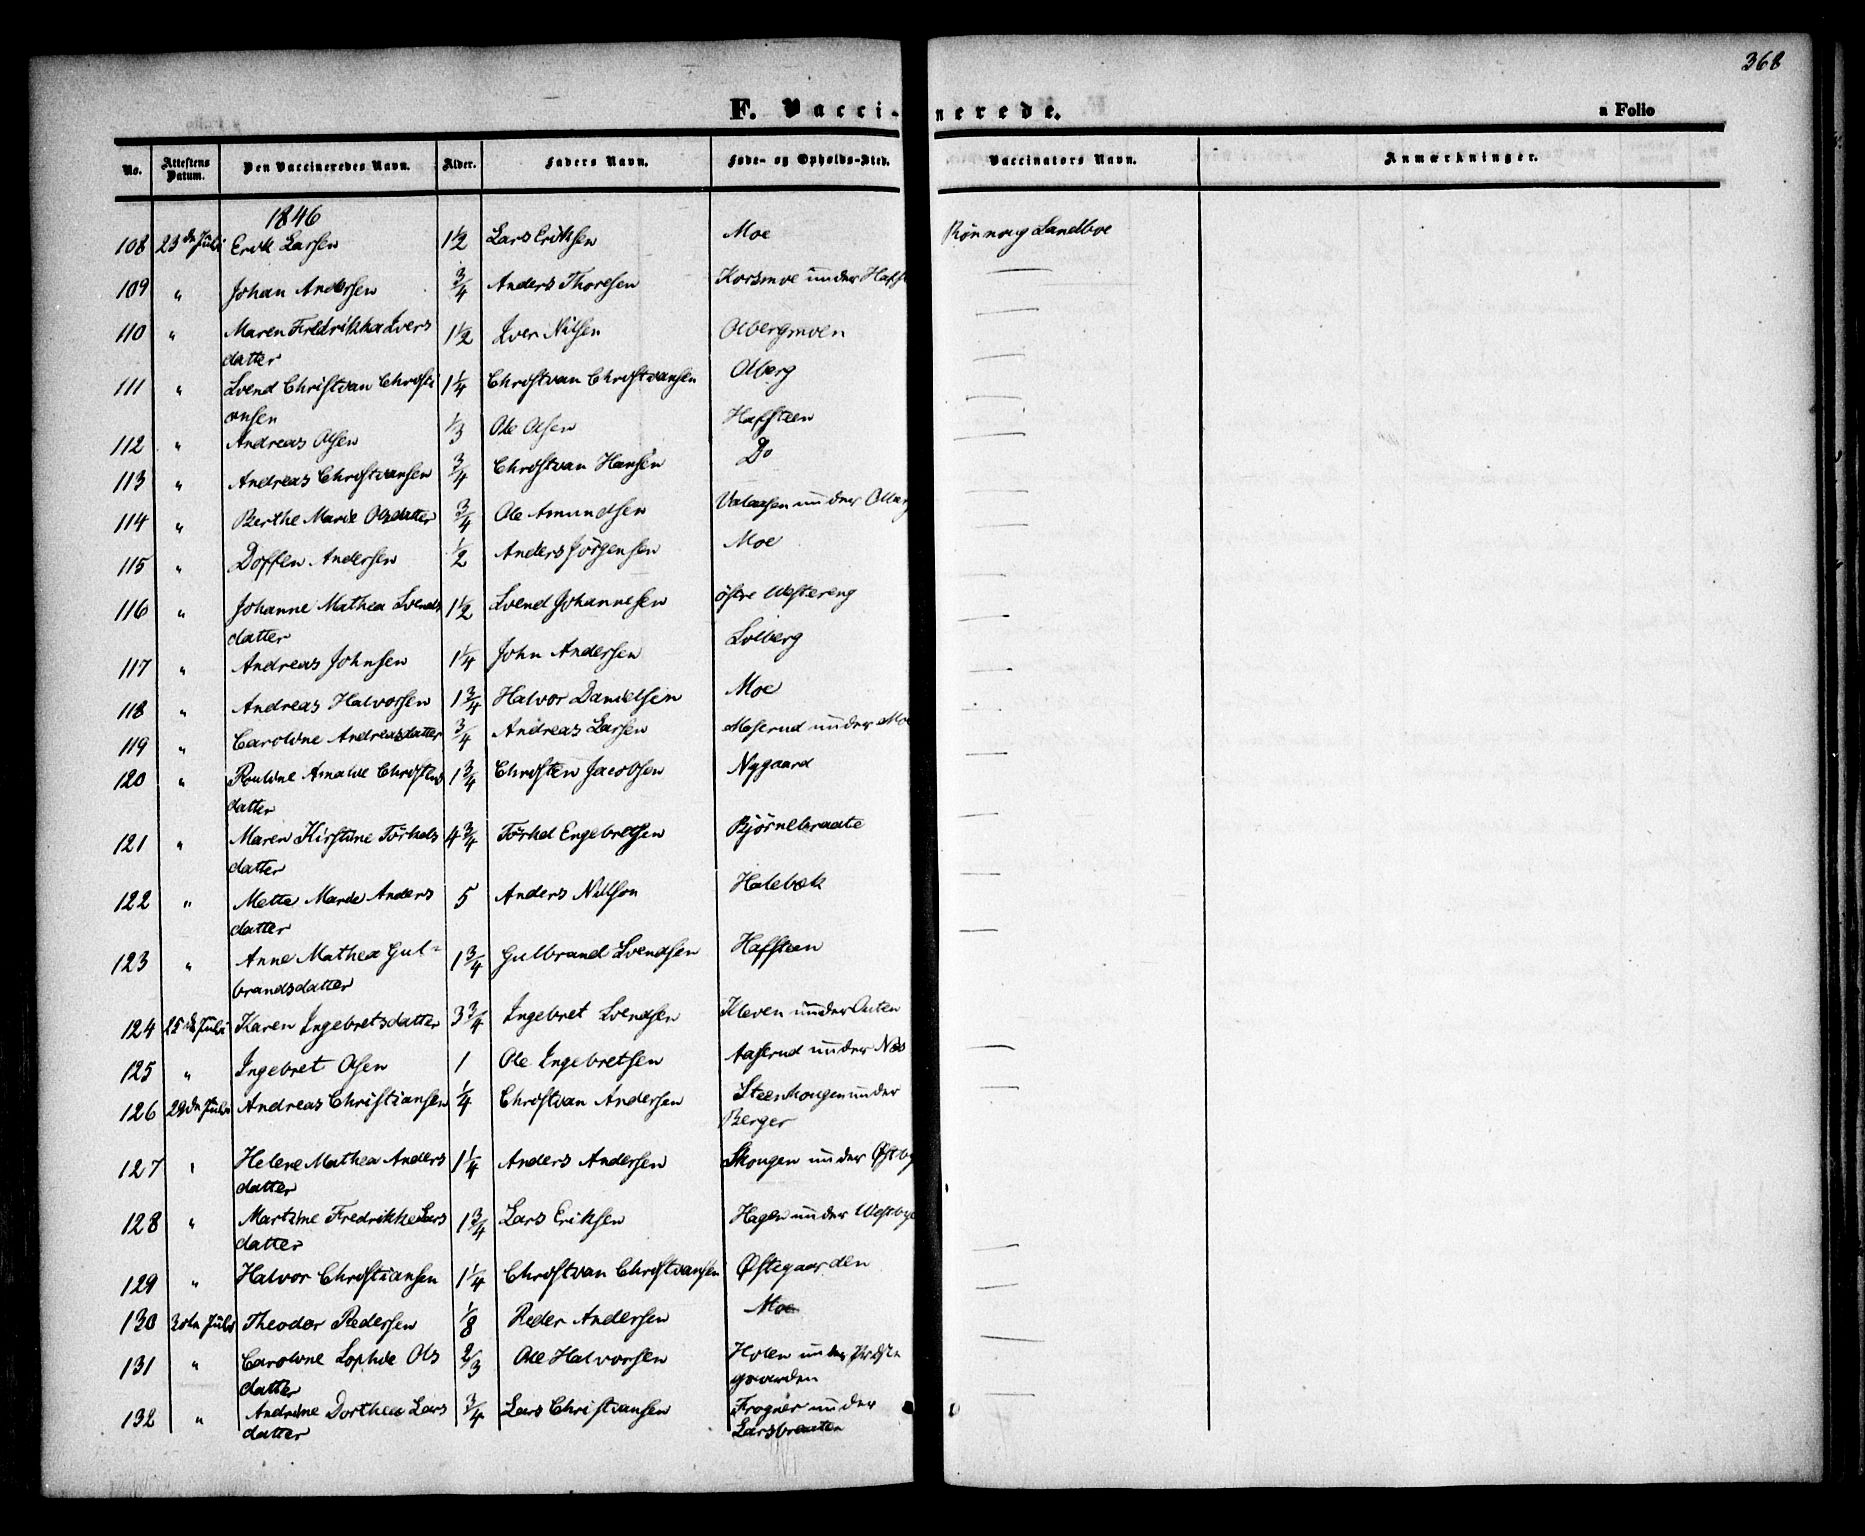 368
F. Vaccinerede.
a Folio
No. Attestens Datum. Den Vaccineredes Navn. Alder. Faders Navn. Føde- og Opholds-Sted. Vaccinators Navn. Anmærkninger.
1846
108 23de Juli Erik Larsen 1 1/2 Lars Eriksen Moe Rönnoug Sandboe
109 " Johan Andersen 3/4 Anders Thoresen Korsmoe under Hafst
110 " Maren Fredrikka Ivers 1 1/2 Iver Nilsen Olbergmoen
datter
111 " Svend Christian Christi 1 1/4 Christian Christiansen Olberg
ansen
112 " Andreas Olsen 1/3 Ole Olsen Hafsteen
113 " Andreas Christiansen 3/4 Christian Hansen Do
114 " Berthe Marie Olsdatter 3/4 Ole Amundsen under Olberg
115 " Doffen Andersen 1/2 Anders Jörgensen Moe
116 " Johanne Mathea Svends 1 1/2 Svend Johannesen östre Westereng
datter
117 " Andreas Johnsen 1 1/4 John Andersen Solberg
118 " Andreas Halvorsen 1 3/4 Halvor Danielsen Moe
119 " Caroline Andreasdatter 3/4 Andreas Larsen Moserud under Moe
120 " Pauline Amalie Christens 1 3/4 Christen Jacobsen Nygaard
datter
121 " Maren Kirstine Törkels 4 3/4 Törkel Engebretsen Björnebraate
datter
122 " Mette Marie Anders 5 Anders Nilson Holebæk
datter
123 " Anne Mathea Gul= 1 3/4 Gulbrand Svendsen Hafsteen
brandsdatter
124 25de Juli Karen Ingebretsdatter 3 3/4 Ingebret Svendsen Kleven under Auten
125 " Ingebret Olsen 1 Ole Ingebretsen Aaserud under Næs
126 29de Juli Andreas Christiansen 1/4 Christian Andersen Steenhougen under
Berger
127 " Helene Mathea Anders 1 1/4 Anders Andersen Skougen under Østby
datter
128 " Martine Fredrikke Lars 1 3/4 Lars Eriksen Hagen under Westbye
datter
129 " Halvor Christiansen 1 1/4 Christian Christiansen Østegaarden
130 30te Juli Theodor Pedersen 1/8 Peder Andersen Moe
131 " Caroline Sophie Ols 2/3 Ole Halvorsen Holen under Præste
datter gaarden
132 " Andrine Dorthea Lars 3/4 Lars Christiansen Frogner under
datter Larsbraaten